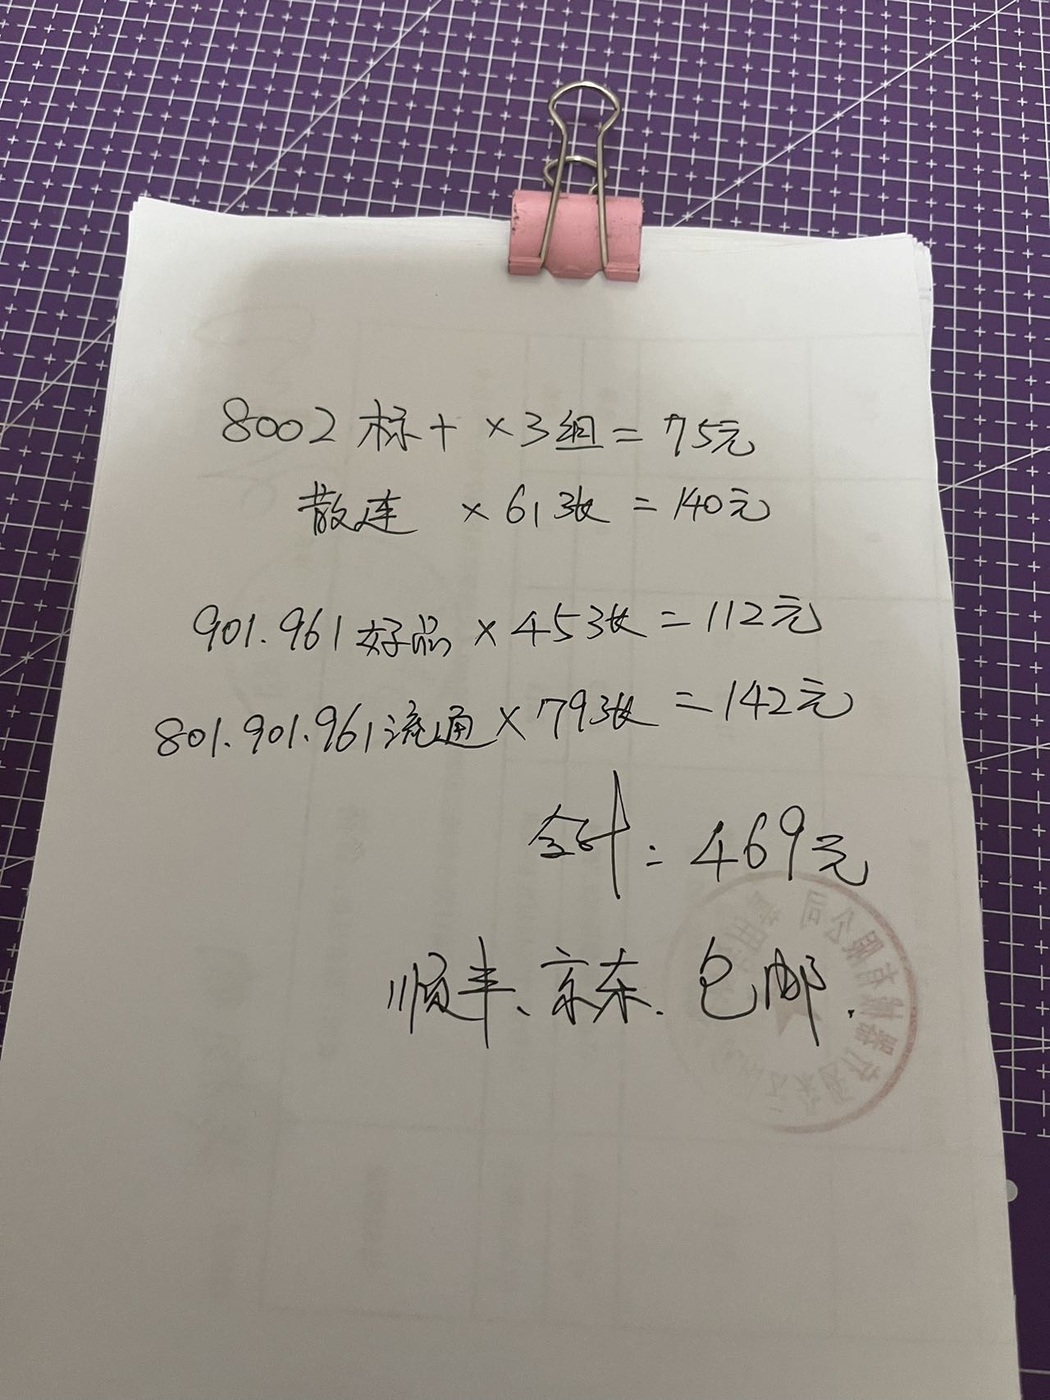 8002标十 ×3组 = 75元
散连 ×61张 = 140元
901.961好品×45张 = 112元
801.901.961流通×79张 = 142元
合计: 469元
顺丰、京东. 包邮.